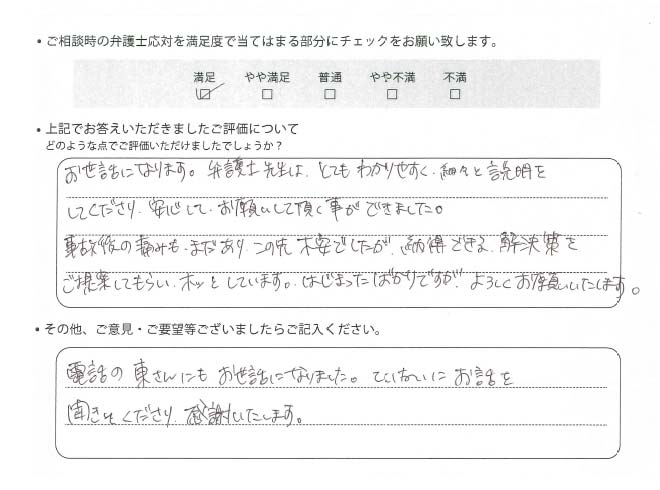 ・ご相談時の弁護士応対を満足度で当てはまる部分にチェックをお願い致します。
満足 やや満足 普通 やや不満 不満
☑ □ □ □ □
・上記でお答えいただきましたご評価について
どのような点でご評価いただけましたでしょうか？
お世話になります。弁護士先生は、とてもわかりやすく、細々と説明を
してくださり、安心して、お願いして頂く事ができました。
事故後の痛みも、まだあり、この先不安でしたが、納得できる、解決策を
ご提案してもらい、ホッとしています。はじまったばかりですが、よろしくお願いいたします。
・その他、ご意見・ご要望等ございましたらご記入ください。
電話の東さんにもお世話になりました。ていねいにお話を
聞きてくださり、感謝いたします。